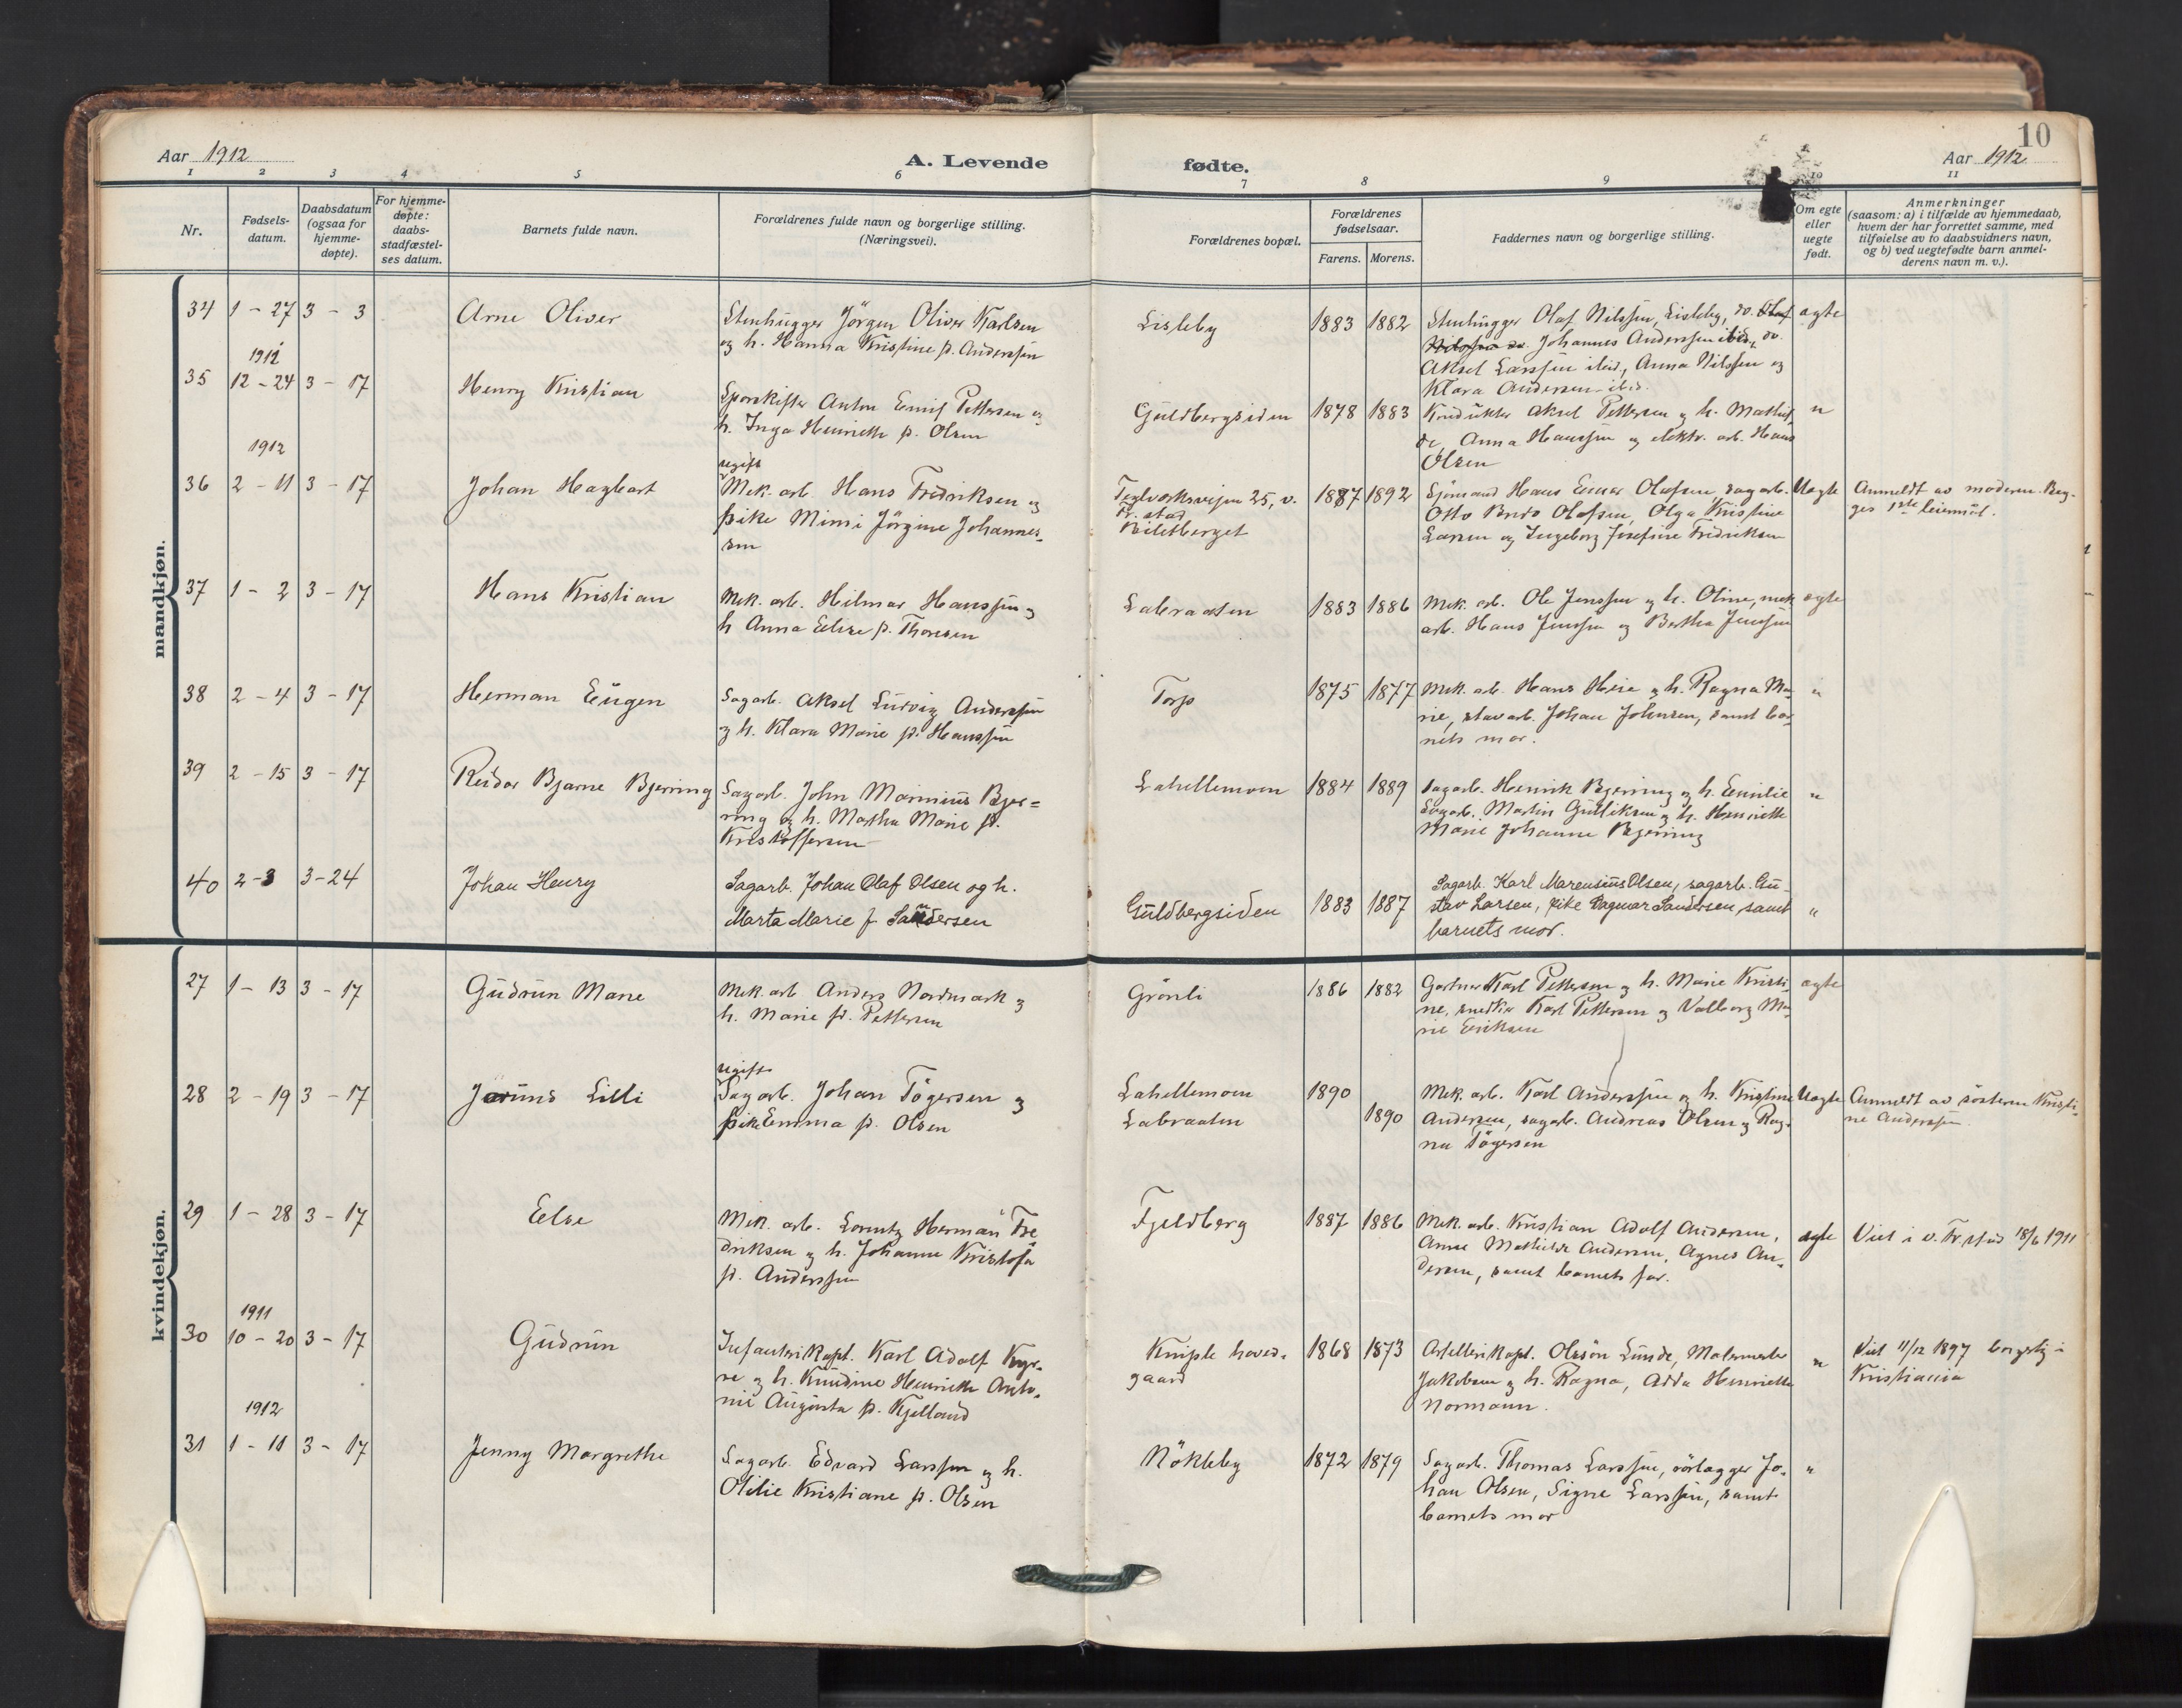 10
Aar 1912
A. Levende fødte.
Aar 1912
1 2 3 4 5 6 7 8 9 10 11
Nr.
Fødsels-
datum.
Daabsdatum
(ogsaa for
hjemme-
døpte).
For hjemme-
døpte:
daabs-
stadfæstel-
ses datum.
Barnets fulde navn.
Forældrenes fulde navn og borgerlige stilling.
(Næringsvei).
Forældrenes bopæl.
Forældrenes
fødselsaar.
Farens. Morens.
Faddernes navn og borgerlige stilling.
Om egte
eller
uegte
født.
Anmerkninger
(saasom: a) i tilfælde av hjemmedaab,
hvem der har forrettet samme, med
tilføielse av to daabsvidners navn,
og b) ved uegtefødte barn anmel-
derens navn m. v.).
mandkjøn.
34 1 - 27 3 - 3 Arne Oliver
Stenhugger Jörgen Oliver Karlsen
og h. Hanna Kristine f. Anderssen
Lisleby 1883 1882
Stenhugger Olaf Nilssen, Lisleby, do. Olaf
Nilssen do. Johannes Anderssen ibid, do.
Aksel Larssen ibid., Anna Nilssen og
Klara Andersen ibid.
egte
1911
35 12 - 24 3 - 17 Henry Kristian
Sporskifter Anton Emil Pettersen og
h. Inga Henriette f. Olsen
Guldbergsiden 1878 1883
Konduktör Aksel Pettersen og h. Mathil,
de, Anna Hanssen og elektr. arb. Hans
Olsen
"
1912
36 2 - 11 3 - 17 Johan Hagbart
ugift
Mek. arb. Hans Fredriksen og
pike Mimi Jörgine Johannes-
sen
Teglverksveien 25, v.
Fr.stad
1887 1892
Sjömand Hans Einar Olafsen, sagarb.
Otto Olafsen, Olga Kristine
Larsen og Ingeborg Josefine Fredriksen
Uegte
Anmeldt av moderen. Beg-
ges 1ste leiermål.
37 1 - 2 3 - 17 Hans Kristian
Mek. arb. Hilmar Hanssen og
h Anna Elise f. Thoresen
Labraaten 1883 1886
Mek. arb. Ole Jenssen og h. Oline, mek
arb. Hans Jenssen og Bertha Jenssen
egte
38 2 - 4 3 - 17 Herman Eugen
Sagarb. Aksel Ludvig Anderssen
og h. Klara Marie f. Hanssen
Torp 1875 1877
Mek. arb. Hans Heie og h. Ragna Ma-
rie, stavarb. Johan Johnsen, samt bar-
nets mor.
"
39 2 - 15 3 - 17 Reidar Bjarne Bjerring
Sagarb. John Marinius Bjer=
ring og h. Martha Marie f.
Kristoffersen
Lahellemoen 1884 1889
Sagarb. Henrik Bjerring og h. Emilie
Sagarb. Martin Gulliksen og h. Henriette
Marie Johanne Bjerring
"
40 2-3 3-24 Johan Henry
Sagarb. Johan Olaf Olsen og h.
Marta Marie f. Sandersen
Guldbergsiden 1883 1887
Sagarb. Karl Marensius Olsen, sagarb. Gu-
stav Larsen, pike Dagmar Sandersen, samt
barnets mor.
"
kvindekjøn.
27 1 - 13 3 - 17 Gudrun Marie
Mek. arb Anders Nordmark og
h. Marie f. Pettersen
Grönli 1886 1882
Gartner Karl Pettersen og h. Marie Kristi-
ne, snedker Karl Pettersen og Valborg Ma-
rie Eriksen
egte
28 2 - 19 3 - 17 Jorund Lilli
ugift
Sagarb. Johan Tögersen og
pike Emma f. Olsen
Lahellemoen 1890
Labraaten 1890
Mek. arb. Karl Anderssen og h. Kristine
Andersen, sagarb. Andreas Olsen og Rag-
na Tögersen
Uegte
Anmeldt av søsteren Kristi-
ne Anderssen.
29 1 - 28 3 - 17 Else
Mek. arb. Lorentz Herman Fre
driksen og h. Johanne Kristofa
f. Anderssen
Fjeldberg 1887 1886
Mek. arb. Kristian Adolf Andersen,
Anna Mathilde Andersen, Agnes An-
dersen, samt barnets far.
egte
Viet i v. Fr.stad 18/6 1911
1911
30 10 - 20 3 - 17 Gudrun
Infanterikapt. Karl Adolf Kyr-
re og h. Knudine Henriette Anto-
nie Augusta f. Kjelland
Kniple hoved-
gaard
1868 1873
Artillerikapt. Olsön Lunde, Malermester
Jakobsen og h. Ragna, Adda Henriette
Normann.
"
Viet 11/12 1897 borgerlig i
Kristiania
1912
31 1 - 11 3 - 17 Jenny Margrethe
Sagarb. Edvard Larssen og h.
Otilie Kristiane f. Olsen
Nökleby 1872 1879
Sagarb. Thomas Larssen, rörlægger Jo-
han Olsen, Signe Larssen, samt
barnets mor
"